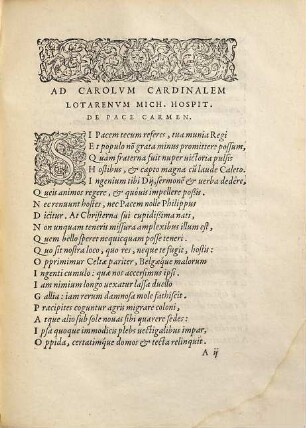 AD CAROLVM CARDINALEM
LOTARENVM MICH. HOSPIT.
DE PACE CARMEN.
SI Pacem tecum referes, tua munia Regi
Et populo nõ grata minus promittere possum,
Quàm fraterna fuit nuper victoria pulsis
Hostibus, & capto magna cũ laude Caleto.
Ingenium tibi Dij, sermonẽ & verba dedêre,
Queis animos regere, & quòuis impellere possis:
Nec renuunt hostes, nec Pacem nolle Philippus
Dicitur. At Christerna sui cupidissima nati,
Non unquam teneris missura amplexibus illum est,
Quem bello speret nequicquam posse teneri.
Quo sit nostra loco, quo res, neque te fugit, hostis:
Opprimimur Celtæ pariter, Belgæque malorum
Ingenti cumulo: quæ nos accersimus ipsi.
Iam nimium longo vexatur lassa duello
Gallia: iam rerum damnosa mole fathiscit.
Præcipites coguntur agris migrare coloni,
Atque alio sub sole nouas sibi quærere sedes:
Ipsa quoque immodicis plebs vectigalibus impar,
Oppida, certatimq́ue domos & tecta relinquit.
A ij